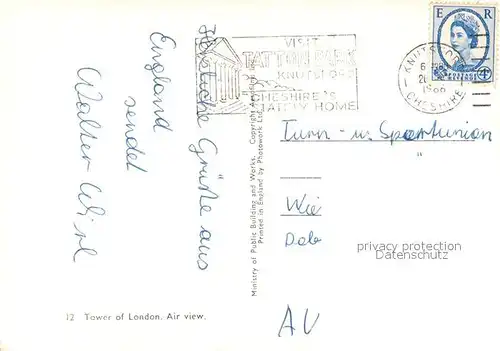 Herzliche Grüße aus
England
sendet
Walter
12 Tower of London. Air view.
Ministry of Public Building and Works. Copyright
Printed in England by Photowork Ltd.
VISIT
TATTON PARK
KNUTSFORD
CHESHIRE'S
STATELY HOME
KNUTSFORD
1966
CHESHIRE
E R
POSTAGE
4D
Turn- u. Sportunion
Wie
privacy protection
Datenschutz
AV